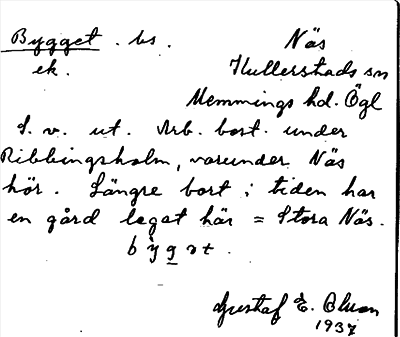 Bygget. bs. Näs
ek. Kullerstads sn
Memmings hd. Ögl
S. v. ut. Arb. bost. under
Ribbingsholm, varunder Näs
hör. Längre bort i tiden har
en gård legat här = Stora Näs.
bygət.
Gustaf E.
1937